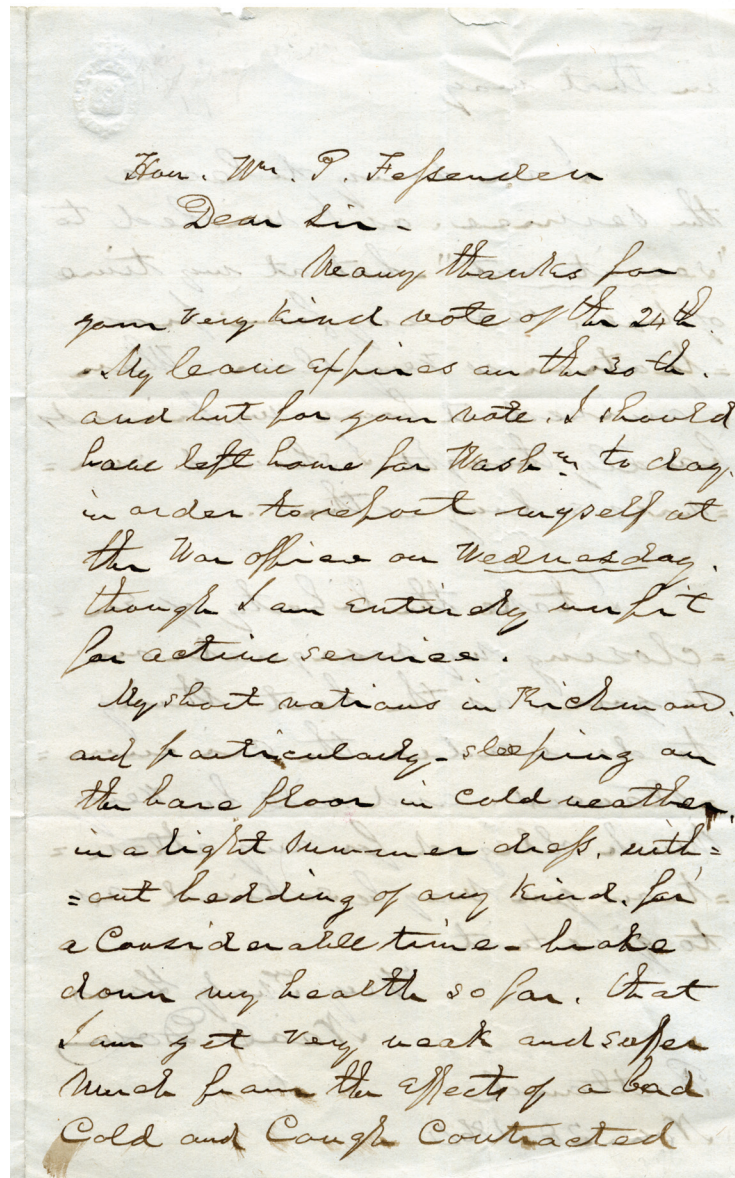 Hon. Wm. P. Fessenden
Dear Sir -
Many thanks for
your very kind vote of the 24th.
My leave expires on the 30th.
and but for your vote. I should
have left home for Washn. to day.
in order to report myself at
the War office on Wednesday.
though I am entirely unfit
for active service.
My short rations in Richmond.
and particularly - sleeping on
the bare floor in cold weather.
in a light summer dress. with=
=out bedding of any kind. for
a considerable time - broke
down my health so far. that
I am yet very weak and suffer
much from the effects of a bad
Cold and Cough Contracted